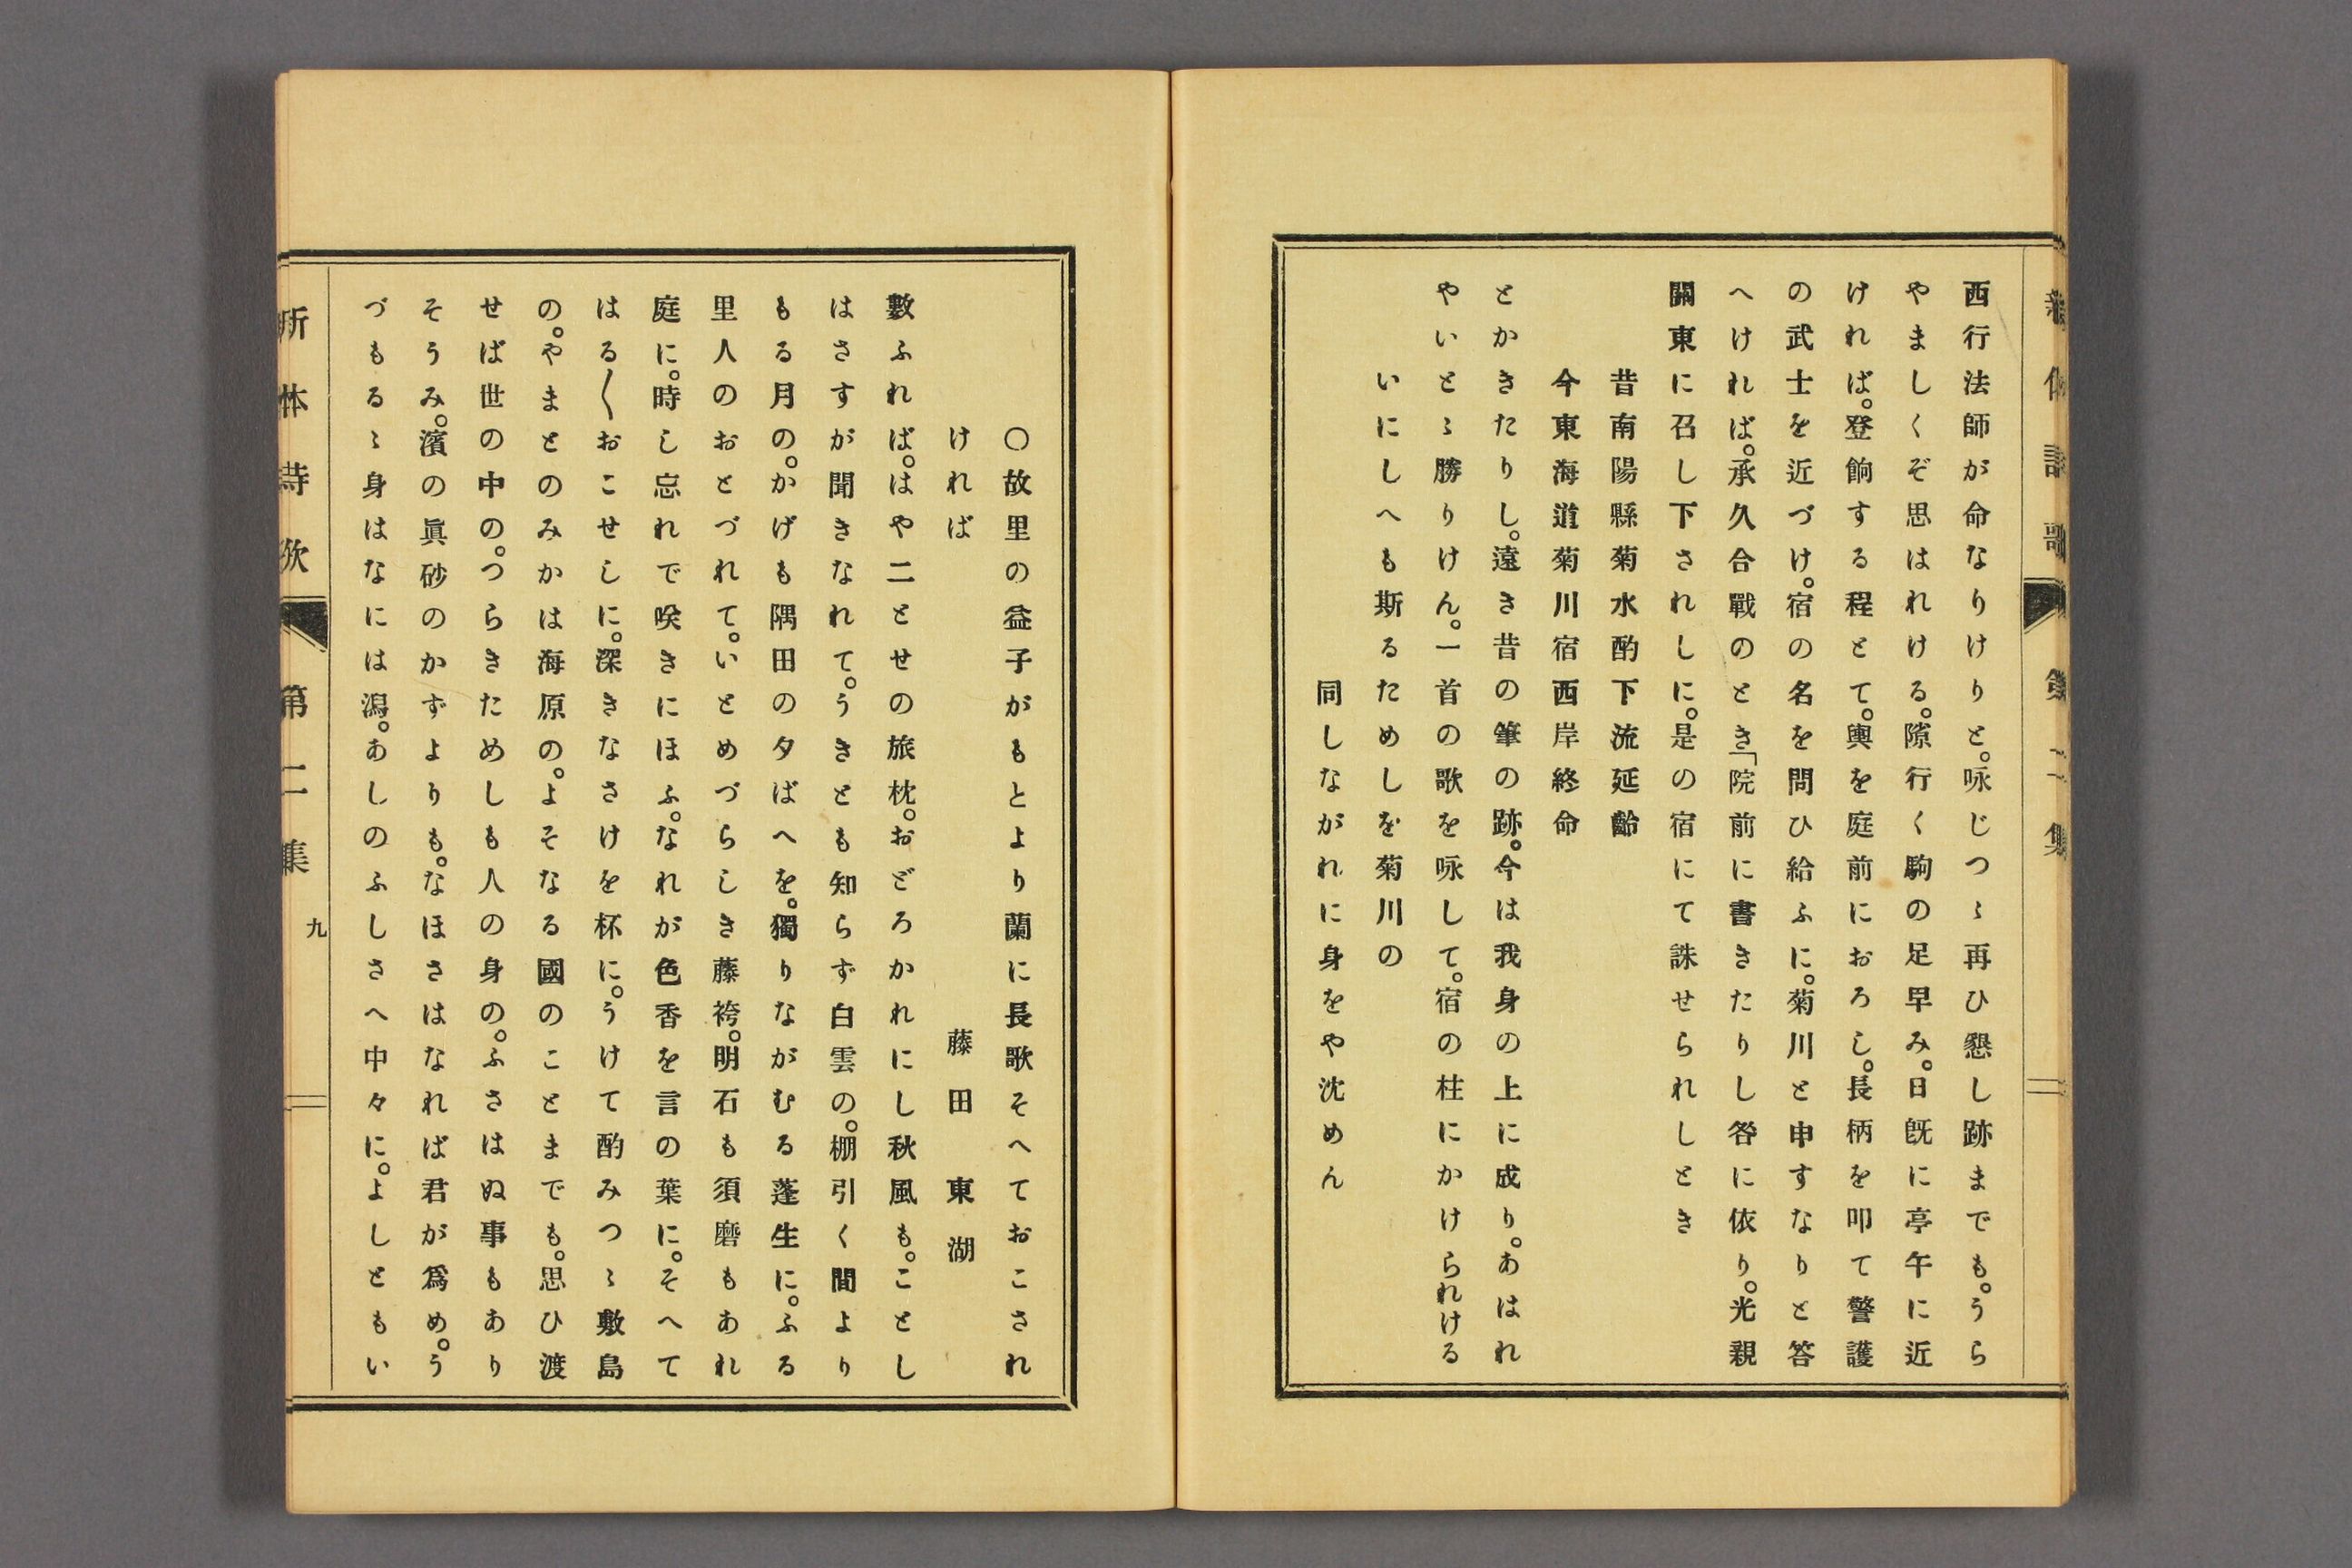 西行法師が命なりけりと。咏じつゝ再ひ懇し跡までも。うら
やましくぞ思はれける。隙行く駒の足早み。日既に亭午に近
ければ。登餉する程とて。輿を庭前におろし。長柄を叩て警護
の武士を近づけ。宿の名を問ひ給ふに。菊川と申すなりと答
へければ。承久合戰のとき「院前に書きたりし咎に依り。光親
關東に召し下されしに。是の宿にて誅せられしとき
昔南陽縣菊水酌下流延齡
今東海道菊川宿西岸終命
とかきたりし。遠き昔の筆の跡。今は我身の上に成り。あはれ
やいとゝ勝りけん。一首の歌を咏して。宿の柱にかけられける
いにしへも斯るためしを菊川の
同しながれに身をや沈めん
新体詩歌 第二集
〇故里の益子がもとより蘭に長歌そへておこされ
ければ
藤田東湖
數ふれば。はや二とせの旅枕。おどろかれにし秋風も。ことし
はさすが聞きなれて。うきとも知らず白雲の。棚引く間より
もる月の。かげも隅田の夕ばへを。獨りながむる蓬生に。ふる
里人のおとづれて。いとめづらしき藤袴。明石も須磨もあれ
庭に。時し忘れで咲きにほふ。なれが色香を言の葉に。そへて
はる〱おこせしに。深きなさけを杯に。うけて酌みつゝ敷島
の。やまとのみかは海原の。よそなる國のことまでも。思ひ渡
せば世の中の。つらきためしも人の身の。ふさはぬ事もあり
そうみ。濱の眞砂のかずよりも。なほさはなれば君が爲め。う
づもるゝ身はなには潟。あしのふしさへ中々に。よしともい
新体詩歌 第二集
九